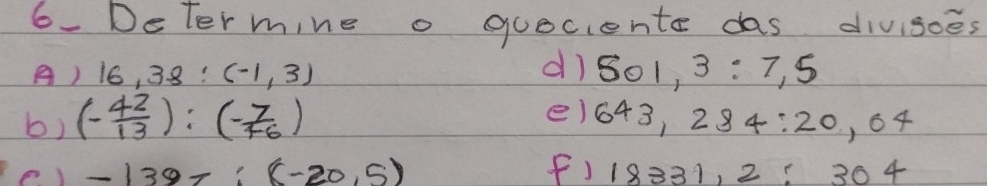 6- Determine o quociente das divisões
A) 16,38 : (-1,3)
d) 501,3 : 7,5
b) (-42/13) : (-7/76)
e) 643,284 : 20,04
c) -139 : (-20,5)
f) 18331,2 : 304